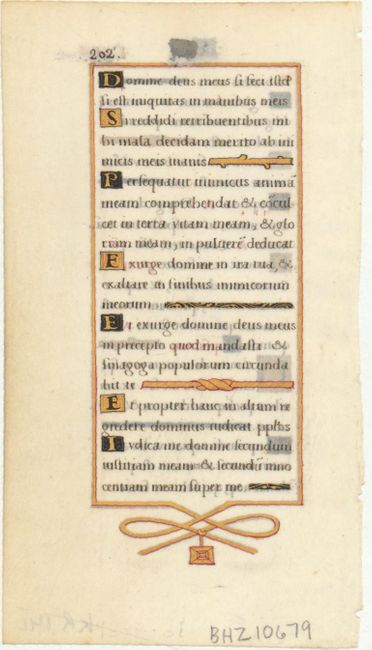 202.
Domine deus meus si feci istd
si est iniquitas in manibus meis
Si reddidi retribuentibus mi
hi mala decidam merito ab ini
micis meis inanis
Persequatur inimicus animā
meam comprehendat & cōcul
cet in terra vitam meam, & glo
riam meam, in pulverē deducat
Exurge domine in ira tua, &
exaltare in finibus inimicorum
meorum
Et exurge domine deus meus
in precepto quod mandasti &
sinagoga populorum circunda
bit te
Et propter hanc in altum re
gredere dominus iudicat pp̄los
Iudica me domine secundum
iustitiam meam & secundū inno
centiam meam super me
BHZ10679